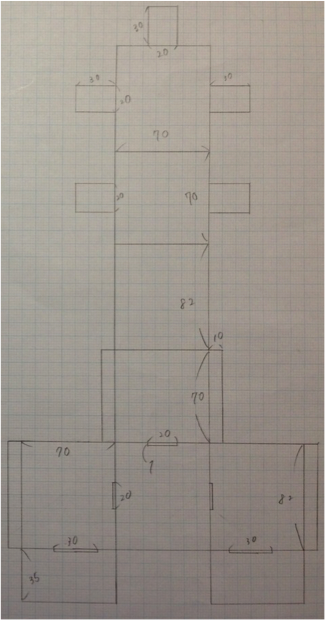 30
20
30
30
20
70
20
70
82
10
70
20
70
1
20
82
30
30
35